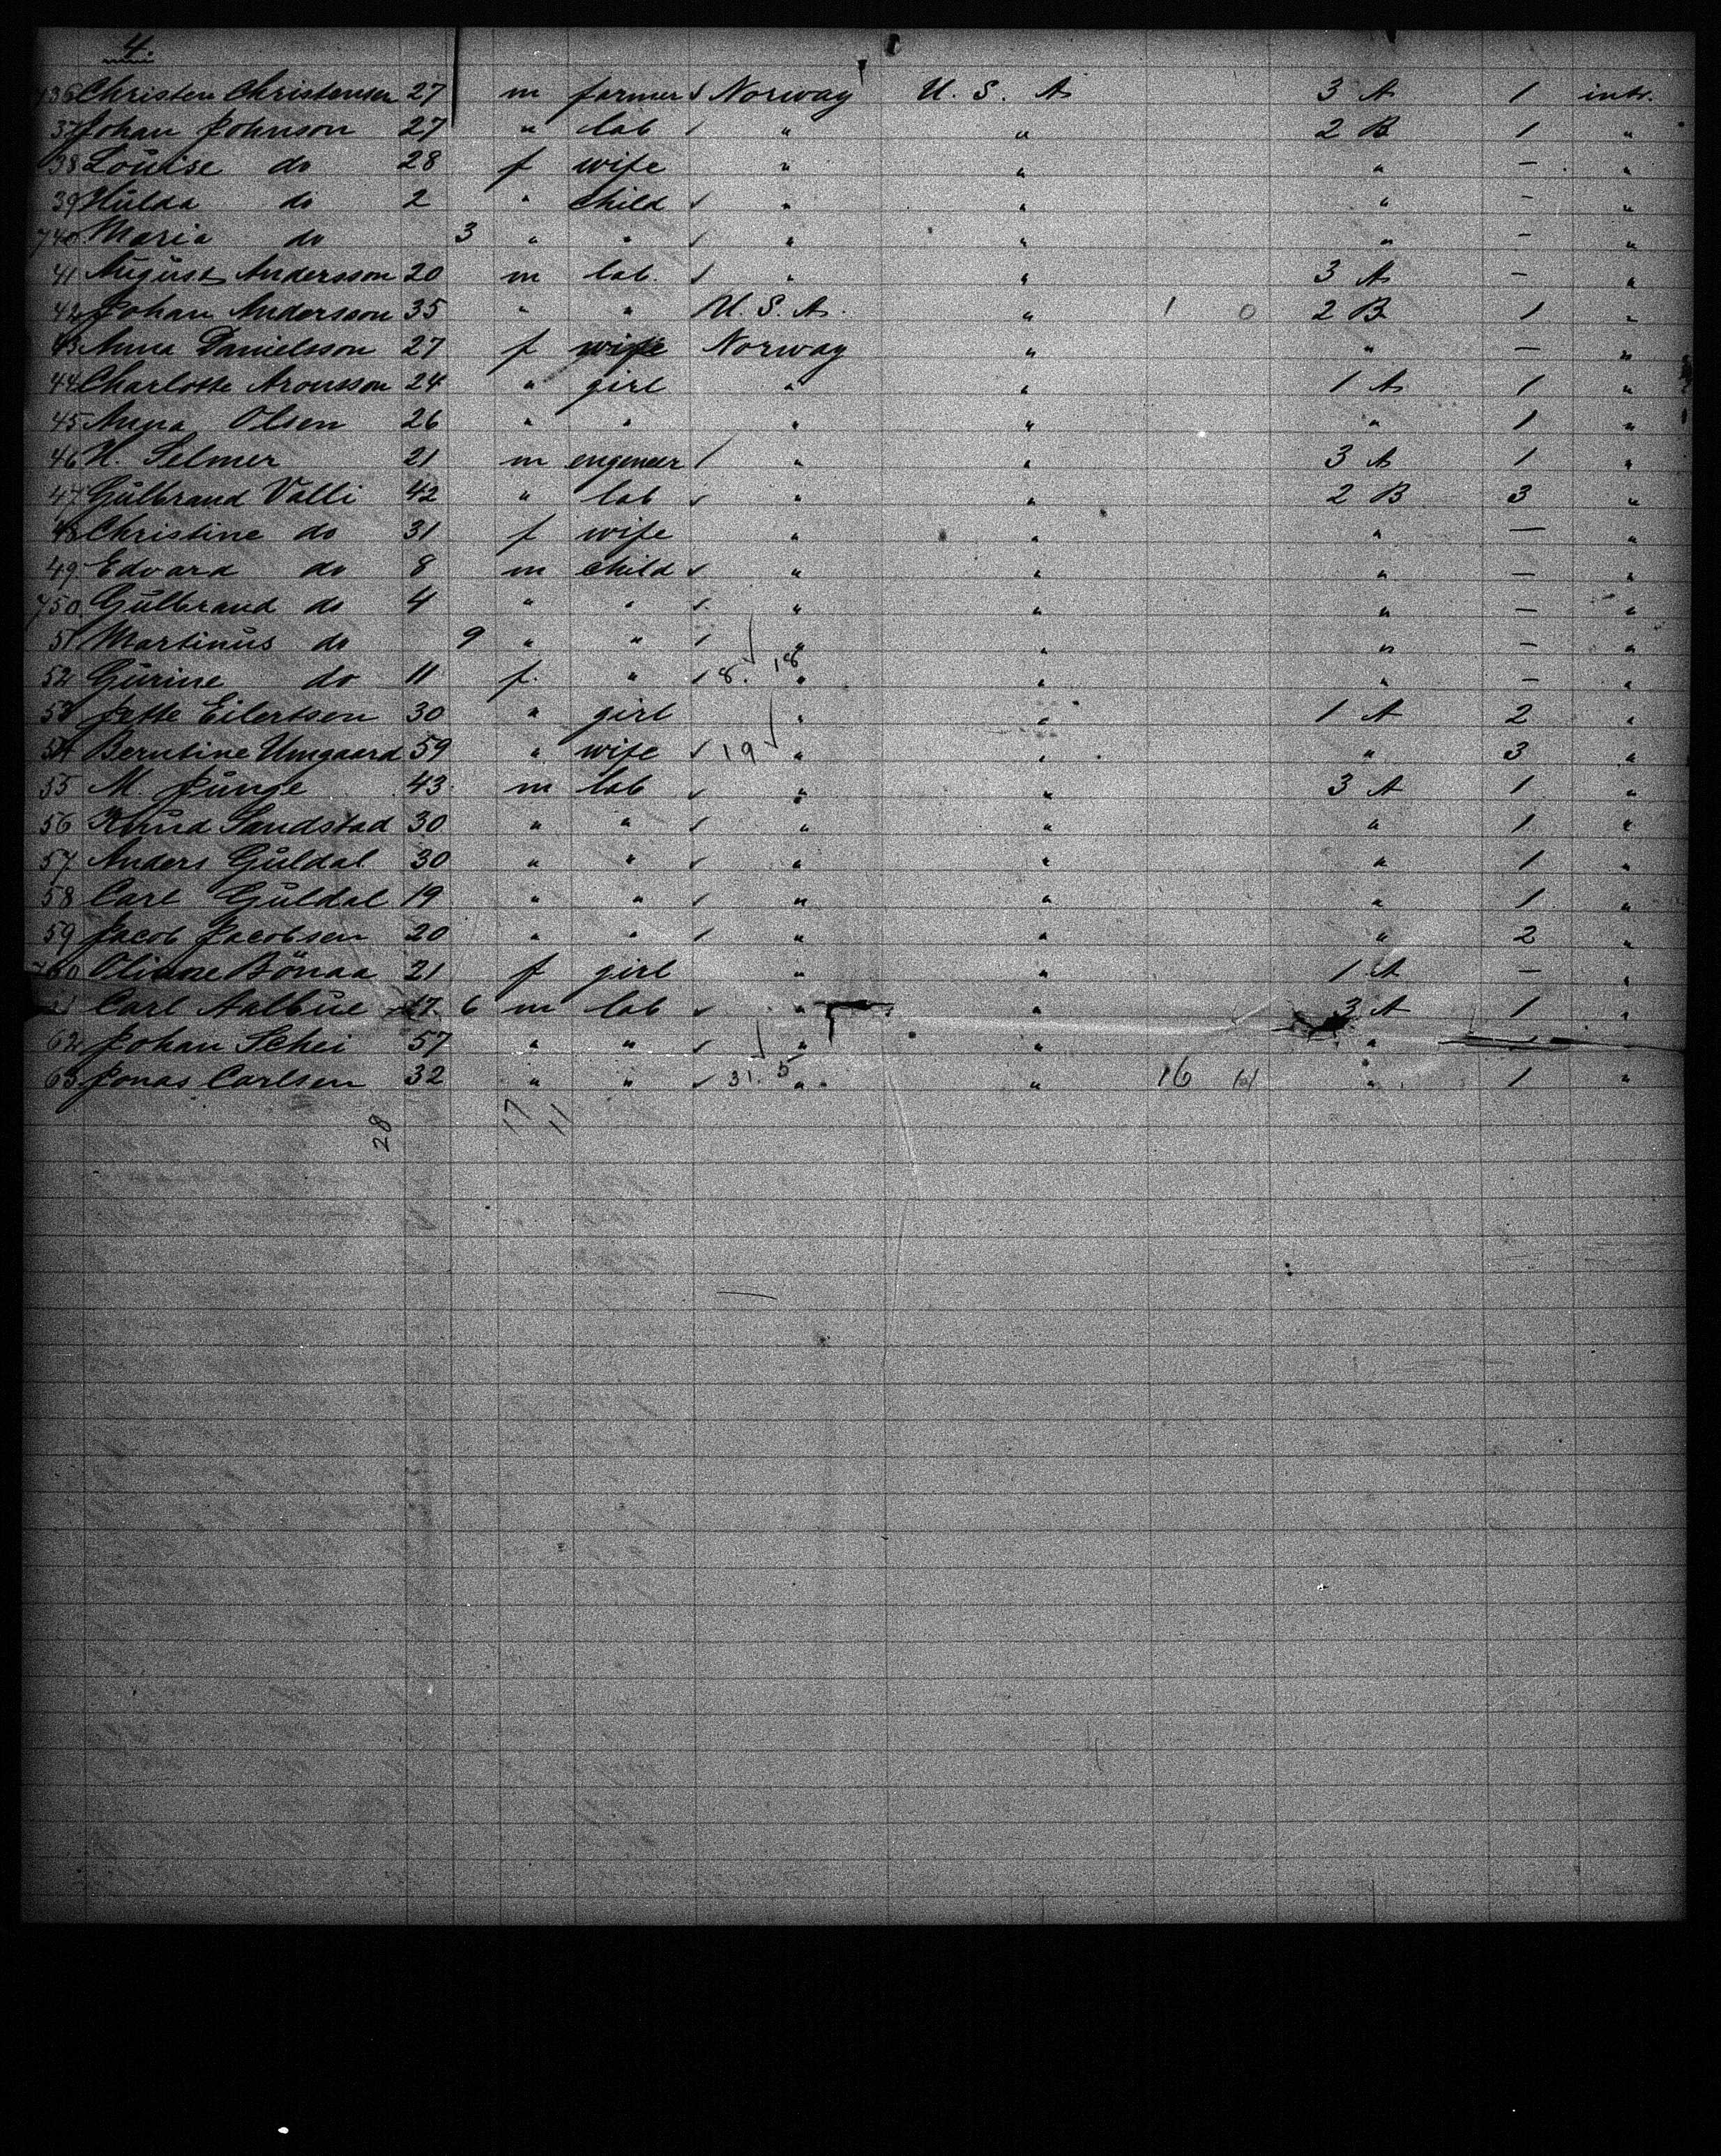 4.
736 Christen Christensen 27 m farmer Norway U. S. A. 3 A 1 intr.
37 Johan Johnson 27 " lab " " 2 B 1 "
38 Louise do 28 f wife " " " — "
39 Hulda do 2 " child " " " — "
740 Maria do 3 " " " " " — "
41 August Andersson 20 m lab. " " 3 A — "
42 Johan Andersson 35 " " U. S. A. " 1 0 2 B 1 "
43 Anna Danielsson 27 f wife Norway " " — "
44 Charlotte Aronsson 24 " girl " " 1 A 1 "
45 Anna Olsen 26 " " " " " 1 "
46 H. Selmer 21 m engeneer " " 3 A 1 "
47 Gulbrand Valli 42 " lab " " 2 B 3 "
48 Christine do 31 f wife " " " — "
49 Edvard do 8 m child " " " — "
750 Gulbrand do 4 " " " " " — "
51 Martinus do 9 " " " " " — "
52 Gurine do 11 f. " 8. 18 " " " — "
53 Jette Eilertsen 30 " girl " " 1 A 2 "
54 Berntine 59 " wife 19 " " " 3 "
55 M. Junge 43 m lab " " 3 A 1 "
56 Knud Sandstad 30 " " " " " 1 "
57 Anders Guldal 30 " " " " " 1 "
58 Carl Guldal 19 " " " " " 1 "
59 Jacob Jacobsen 20 " " " " " 2 "
760 Bönaa 21 f girl " " 1 A — "
61 Carl Aalbue 17 6 m lab " " 3 A 1 "
62 Johan Schei 57 " " " " " "
63 Jonas Carlsen 32 " " 31. 5 " " 16 " 1 "
28 17 11